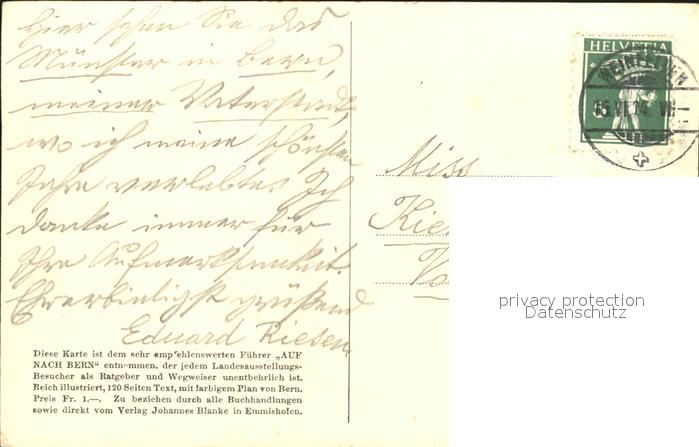 Hier sehen Sie das
Münster in Bern,
meiner Vaterstadt,
wo ich meine schönsten
Jahre verlebte. Ich
danke immer für
Ihre Aufmerksamkeit.
Ehrerbietigst grüßend
Eduard Riesen
Diese Karte ist dem sehr empfehlenswerten Führer „AUF
NACH BERN" entnommen, der jedem Landesausstellungs-
Besucher als Ratgeber und Wegweiser unentbehrlich ist.
Reich illustriert, 120 Seiten Text, mit farbigem Plan von Bern.
Preis Fr. 1.—. Zu beziehen durch alle Buchhandlungen
sowie direkt vom Verlag Johannes Blanke in Emmishofen.
HELVETIA
15.VI.14. VII
Miss
privacy protection
Datenschutz